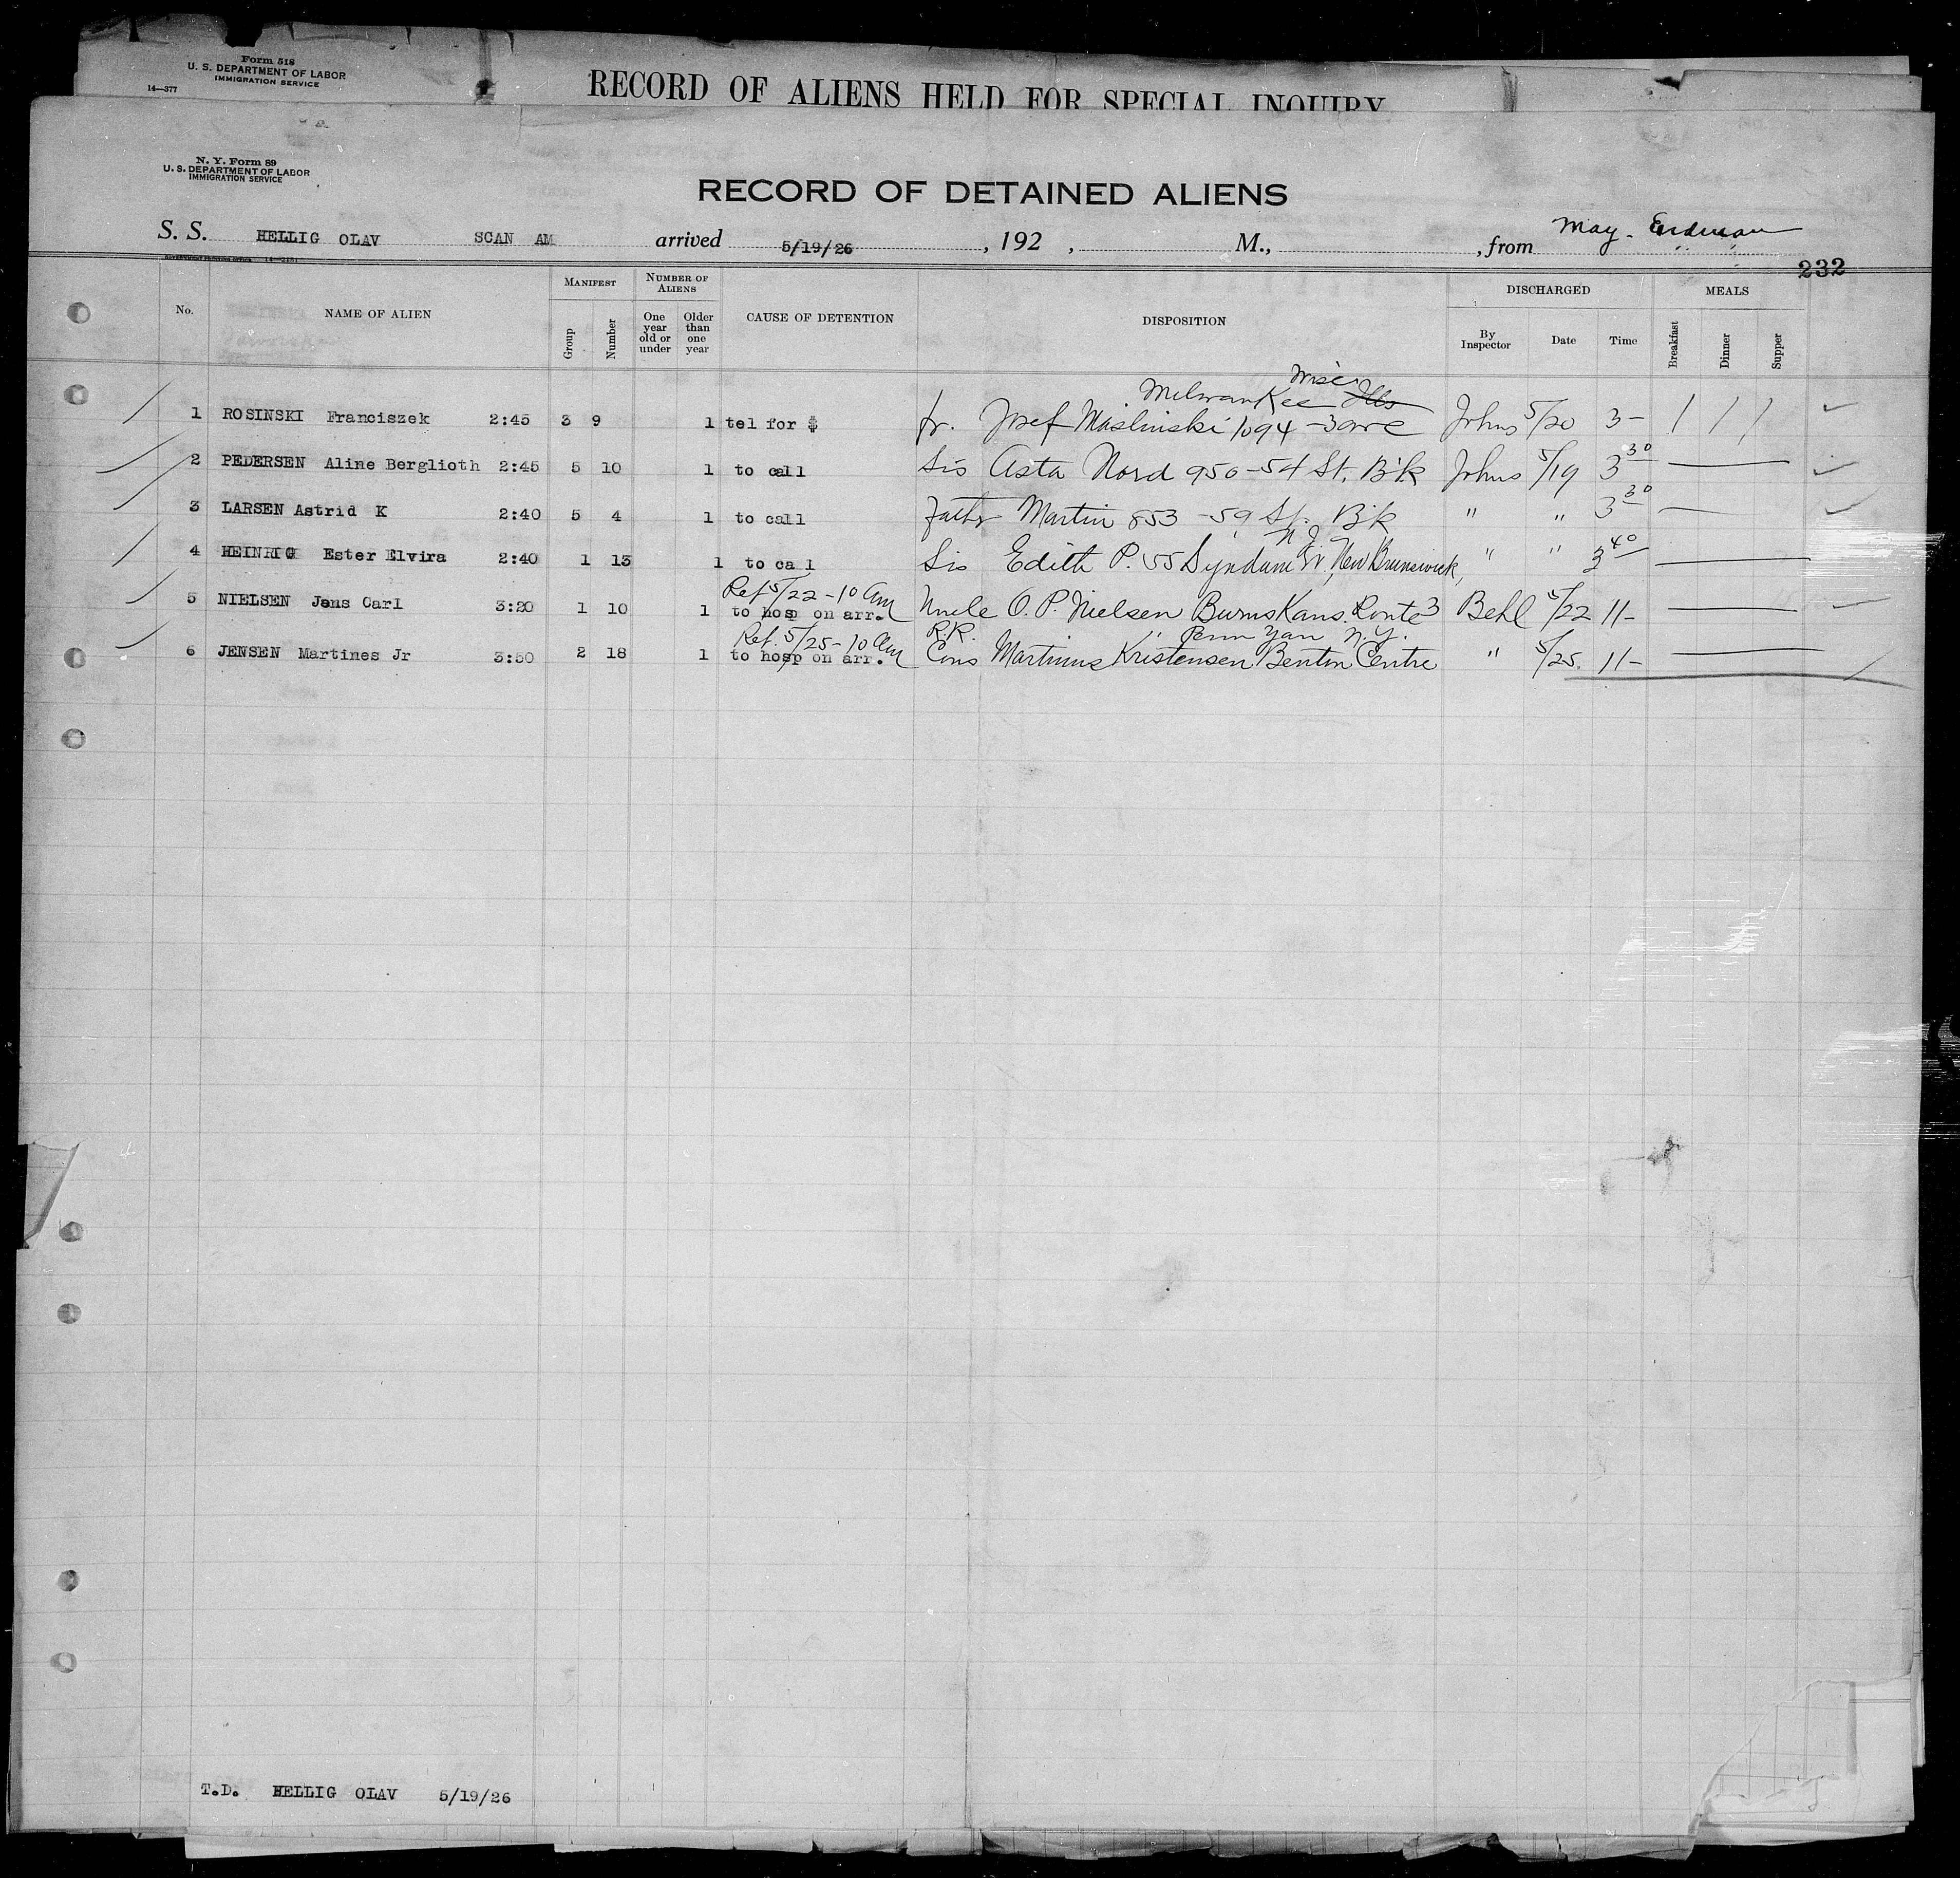 Form 518
U. S. DEPARTMENT OF LABOR
IMMIGRATION SERVICE
14—377
RECORD OF ALIENS HELD FOR SPECIAL INQUIRY
N. Y. Form 89
U. S. DEPARTMENT OF LABOR
IMMIGRATION SERVICE
RECORD OF DETAINED ALIENS
S. S. HELLIG OLAV SCAN AM arrived 5/19/26 , 192 , M., , from May. Erdman
232
No. NAME OF ALIEN MANIFEST Group Number NUMBER OF ALIENS One year old or under Older than one year CAUSE OF DETENTION DISPOSITION DISCHARGED By Inspector Date Time MEALS Breakfast Dinner Supper
Milwaukee Wisc
1 ROSINSKI Franciszek 2:45 3 9 1 tel for $ fr. Josef Maslinski 1094 - 3 ave Johns 5/20 3- / / /
2 PEDERSEN Aline Berglioth 2:45 5 10 1 to call Sis Asta Nord 950-54 St. B'k Johns 5/19 3 30
3 LARSEN Astrid K 2:40 5 4 1 to call Father Martin 853 - 59 St. B'k " " 3 30
N J
4 HEINRIG Ester Elvira 2:40 1 13 1 to ca l Sis Edith P. 55 St, New Brunswick, " " 3 40
Ref 5/22 - 10 am
5 NIELSEN Jens Carl 3:20 1 10 1 to hosp on arr. Uncle O. P. Nielsen Burns Kans. Route 3 Behl 5/22 11-
Ref. 5/25 - 10 am R.R. " Penn Yan N.Y.
6 JENSEN Martines Jr 3:50 2 18 1 to hosp on arr. Cons Martinus Kristensen Benton Centre " 5/25. 11-
T.D. HELLIG OLAV 5/19/26